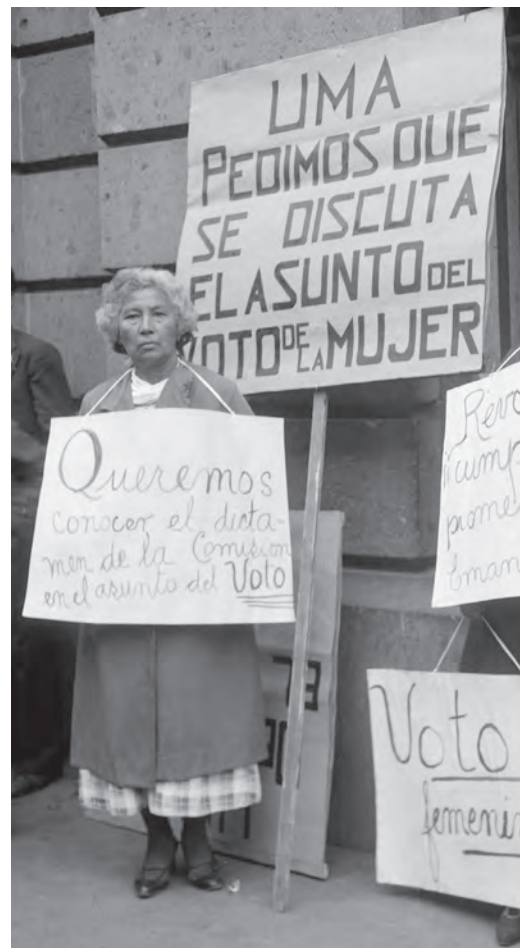 UMA
PEDIMOS QUE
SE DISCUTA
EL ASUNTO DEL
VOTO DE LA MUJER
Queremos
conocer el dicta-
men de la Comision
en el asunto del Voto
Voto